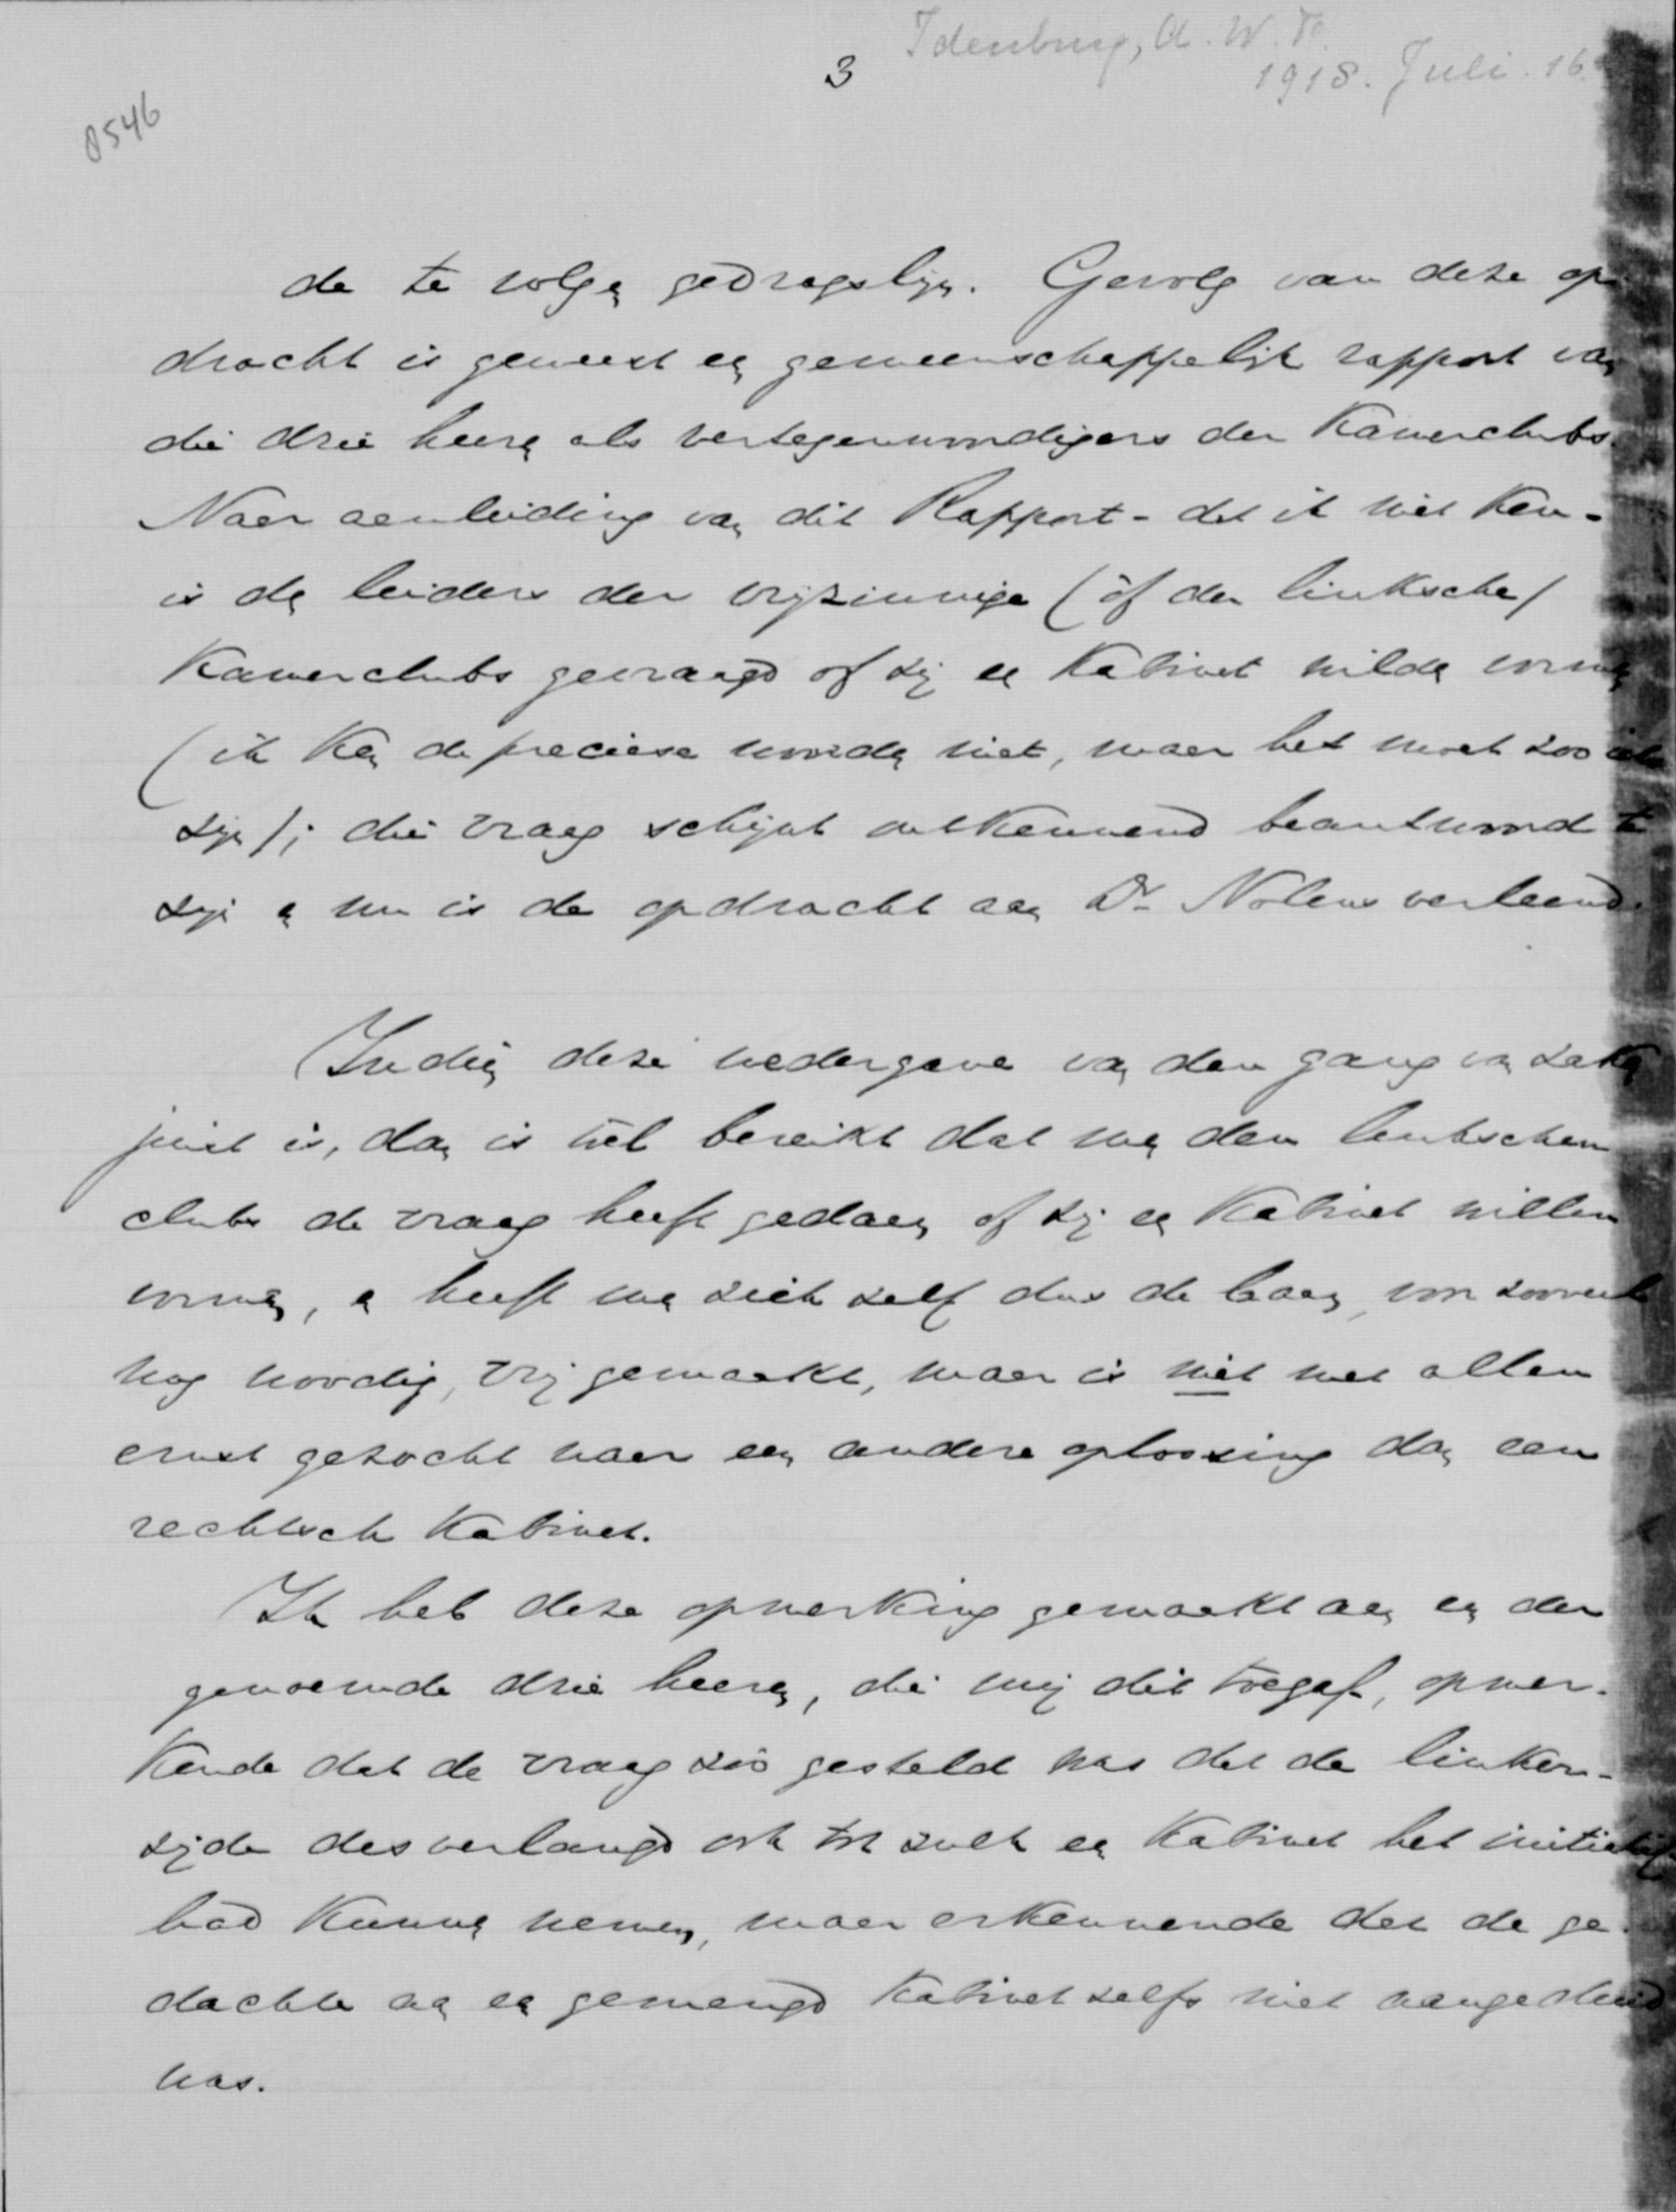 Idenburg, A. W. F.
3
1918. Juli. 16.
8546
de te volgen gedragslijn. Gevolg van deze op-
dracht is geweest een gemeenschappelijk rapport van
die drie heeren als vertegenwoordigers der Kamerclubs.
Naar aanleiding van dit Rapport - dat ik niet ken -
is den leiders der vrijzinnige (òf der linksche)
Kamerclubs gevraagd of zij een Kabinet wilden vormen
(ik ken de preciese woorden niet, maar het moet zoo iets
zijn); die vraag schijnt ontkennend beantwoord te
zijn en nu is de opdracht aan Dr. Nolens verleend.
Indien deze wedergave van den gang van zaken
juist is, dan is wèl bereikt dat men den linkschen
clubs de vraag heeft gedaan of zij een Kabinet willen
vormen, en heeft men zich zelf dus de baan, voor zooveel
nog noodig, vrij gemaakt, maar is niet met allen
ernst gezocht naar een andere oplossing dan een
rechtsch Kabinet.
Ik heb deze opmerking gemaakt aan een der
genoemde drie heeren, die mij dit toegaf, opmer-
kende dat de vraag zóó gesteld was dat de linker-
zijde desverlangd ook tot zulk een Kabinet het initiatief
had kunnen nemen, maar erkennende dat de ge-
dachte aan een gemengd Kabinet zelfs niet aangeduid
was.